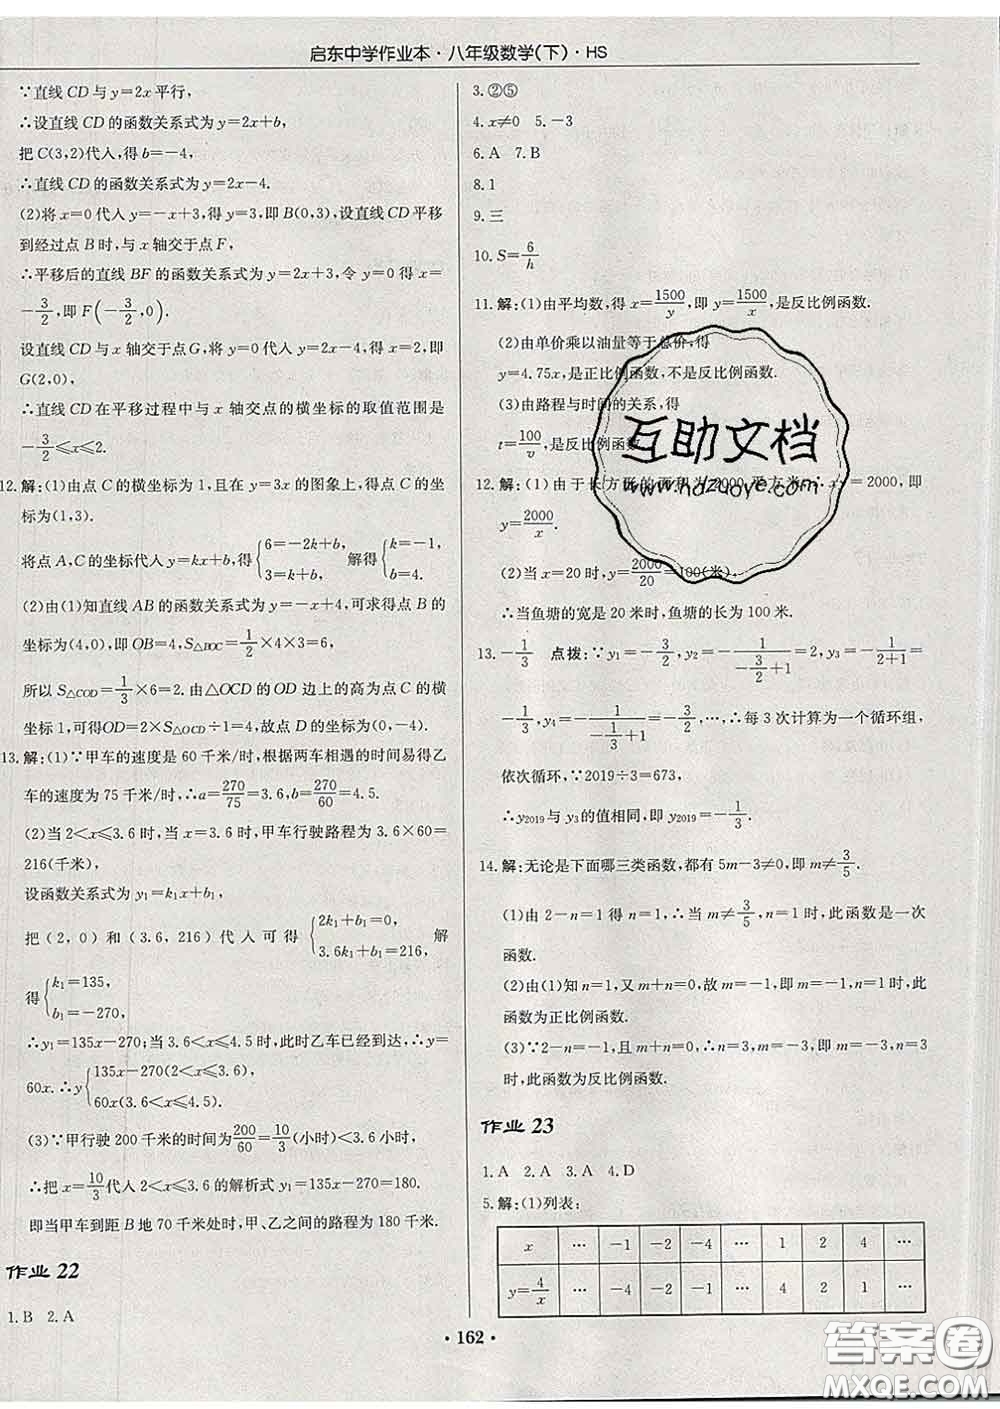 启东中学作业本·八年级数学(下)·HS
∵直线 CD 与 y=2x 平行,
∴设直线 CD 的函数关系式为 y=2x+b,
把 C(3,2)代入,得 b=-4,
∴直线 CD 的函数关系式为 y=2x-4.
(2)将 x=0 代入 y=-x+3,得 y=3,即 B(0,3),设直线 CD 平移
到经过点 B 时,与 x 轴交于点 F,
∴平移后的直线 BF 的函数关系式为 y=2x+3,令 y=0 得 x=
-3/2,即 F(-3/2,0).
设直线 CD 与 x 轴交于点 G,将 y=0 代入 y=2x-4,得 x=2,即
G(2,0),
∴直线 CD 在平移过程中与 x 轴交点的横坐标的取值范围是
-3/2≤x≤2.
12.解:(1)由点 C 的横坐标为 1,且在 y=3x 的图象上,得点 C 的坐
标为(1,3).
将点 A,C 的坐标代入 y=kx+b,得{6=-2k+b, 3=k+b,解得{k=-1, b=4.
(2)由(1)知直线 AB 的函数关系式为 y=-x+4,可求得点 B 的
坐标为(4,0),即 OB=4,S△BOC=1/2×4×3=6,
所以 S△COD=1/3×6=2.由△OCD 的 OD 边上的高为点 C 的横
坐标 1,可得OD=2×S△OCD÷1=4,故点 D 的坐标为(0,-4).
13.解:(1)∵甲车的速度是 60 千米/时,根据两车相遇的时间易得乙
车的速度为 75 千米/时,∴a=270/75=3.6,b=270/60=4.5.
(2)当 2<x≤3.6 时,当 x=3.6 时,甲车行驶路程为 3.6×60=
216(千米),
设函数关系式为 y₁=k₁x+b₁,
把(2,0)和(3.6,216)代入可得{2k₁+b₁=0, 3.6k₁+b₁=216,解
得{k₁=135, b₁=-270,
∴y₁=135x-270;当 3.6<x≤4.5 时,此时乙车已经到达,∴y=
60x.∴y{135x-270(2<x≤3.6) 60x(3.6<x≤4.5).
(3)∵甲行驶 200 千米的时间为200/60=10/3(小时)<3.6 小时,
∴把 x=10/3代入 2<x≤3.6 的解析式 y₁=135x-270=180.
即当甲车到距 B 地 70 千米处时,甲、乙之间的路程为 180 千米.
作业 22
1.B 2.A
3.②⑤
4.x≠0 5.-3
6.A 7.B
8.1
9.三
10.S=6/h
11.解:(1)由平均数,得 x=1500/y,即 y=1500/x,是反比例函数.
(2)由单价乘以油量等于总价,得
y=4.75x,是正比例函数,不是反比例函数.
(3)由路程与时间的关系,得
t=100/v,是反比例函数.
12.解:(1)由于长方形的面积为 2000 平方米,∴xy=2000,即
y=2000/x.
(2)当 x=20 时,y=2000/20=100(米),
∴当鱼塘的宽是 20 米时,鱼塘的长为 100 米.
13.-1/3 点拨:∵y₁=-3/2,y₂=-1/(-3/2+1)=2,y₃=-1/(2+1)=
-1/3,y₄=-1/(-1/3+1)=-3/2,…,∴每 3 次计算为一个循环组,
依次循环,∵2019÷3=673,
∴y₂₀₁₉与 y₃的值相同,即 y₂₀₁₉=-1/3.
14.解:无论是下面哪三类函数,都有 5m-3≠0,即 m≠3/5.
(1)由 2-n=1 得 n=1,∴当 m≠3/5,n=1 时,此函数是一次
函数.
(2)由(1)知 n=1,又 m+n=0,故 m=-1,即 m=-1,n=1 时,此
函数为正比例函数.
(3)∵2-n=-1,且 m+n=0,∴n=3,m=-3,即 m=-3,n=3
时,此函数为反比例函数.
作业 23
1.A 2.A 3.A 4.D
5.解:(1)列表:
x … -1 -2 -4 … 1 2 4 …
y=4/x … -4 -2 -1 … 4 2 1 …
·162·
互助文档
www.hdzuoye.com
答案圈
MXQE.COM